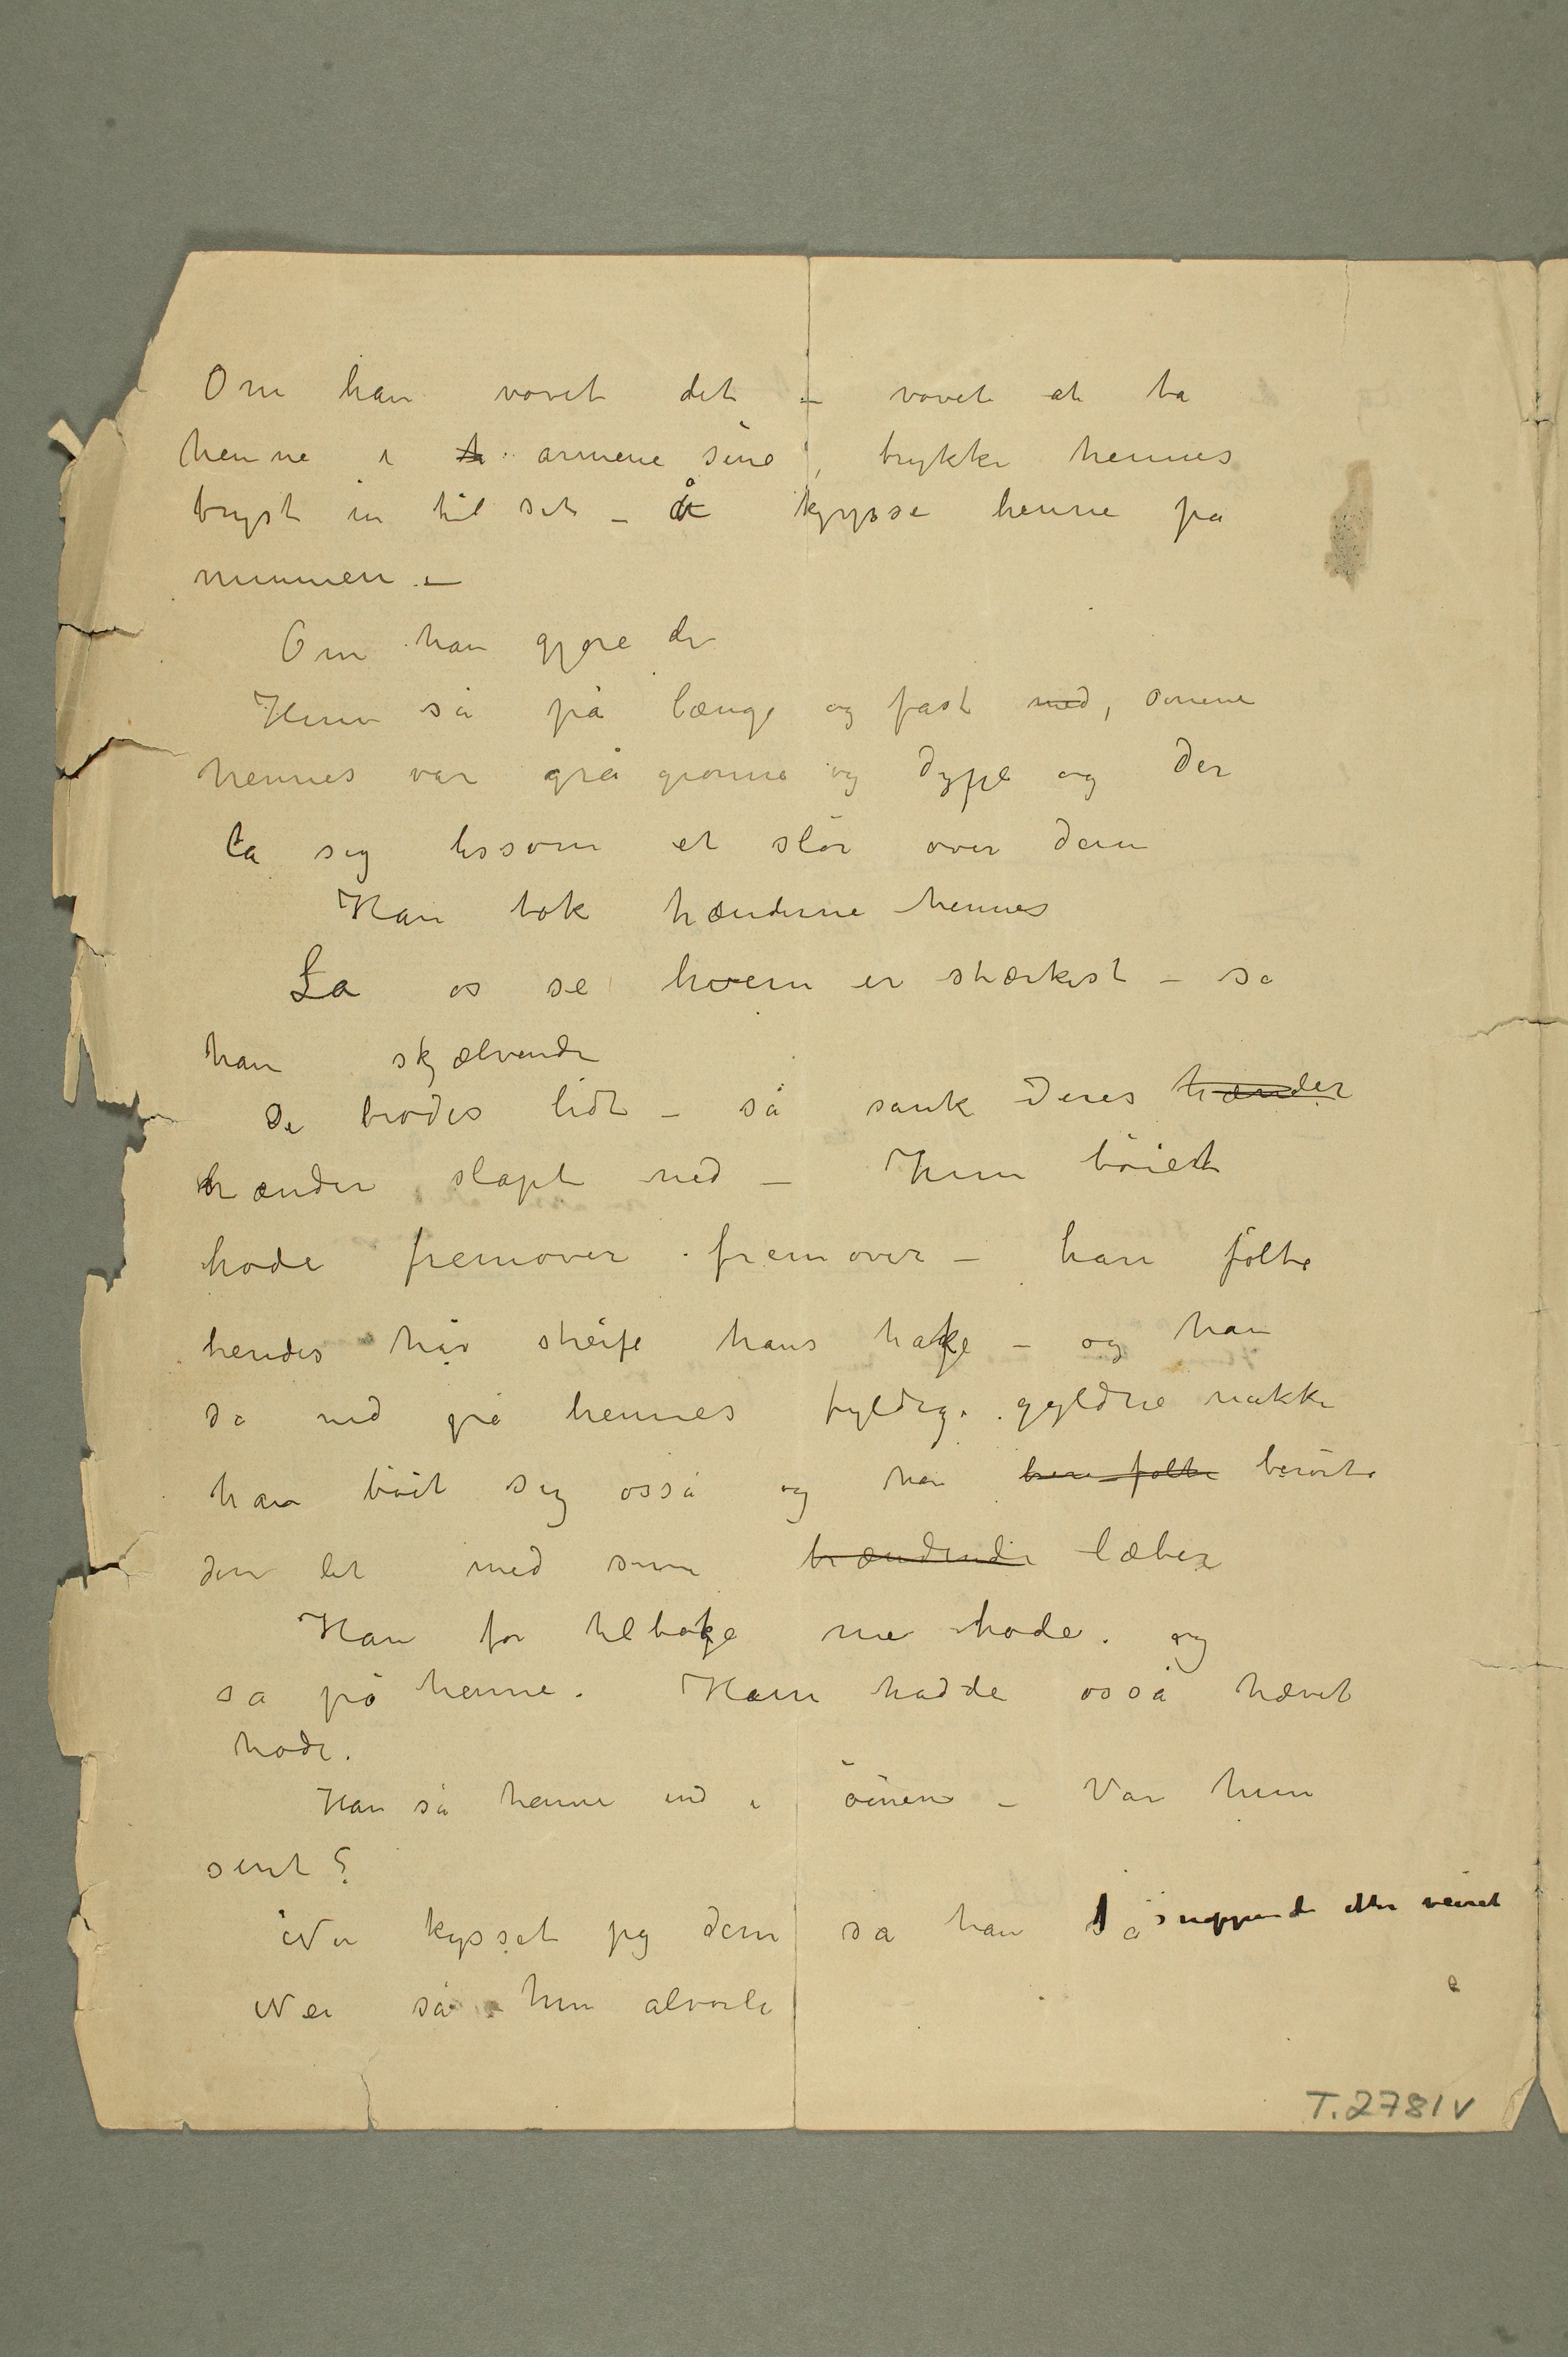 Om han vovet det – vovet at ta
henne i h armene sine, trykke hennes
bryst in til sit – å kysse henne på
munnen –
Om han gjore de
Hun så på længe og fast med, önene
hennes var grå grönne og dype og der
la sig lissom et slör over dem
Han tok hænderne hennes
La os se hvem er stærkest – sa
han skjælvende
De brödes lidt – så sank deres hænder
hænder slapt ned – Hun böiet
hode fremover fremover – han fölte
hendes hår streife hans hake – og han
så ned på hennes fyldige gyldne nakke
han böit sig osså og han bere fölte berörte
den let med sine brændende læber
Han for tilbake me hode. og
så på henne. Hun hadde osså hævet
hode.
Han så henne ind i öinene – Var hun
sint?
Nu kysset jeg dem sa han så snappende etter veiret
Nei sa hun alvorli
T.2781v